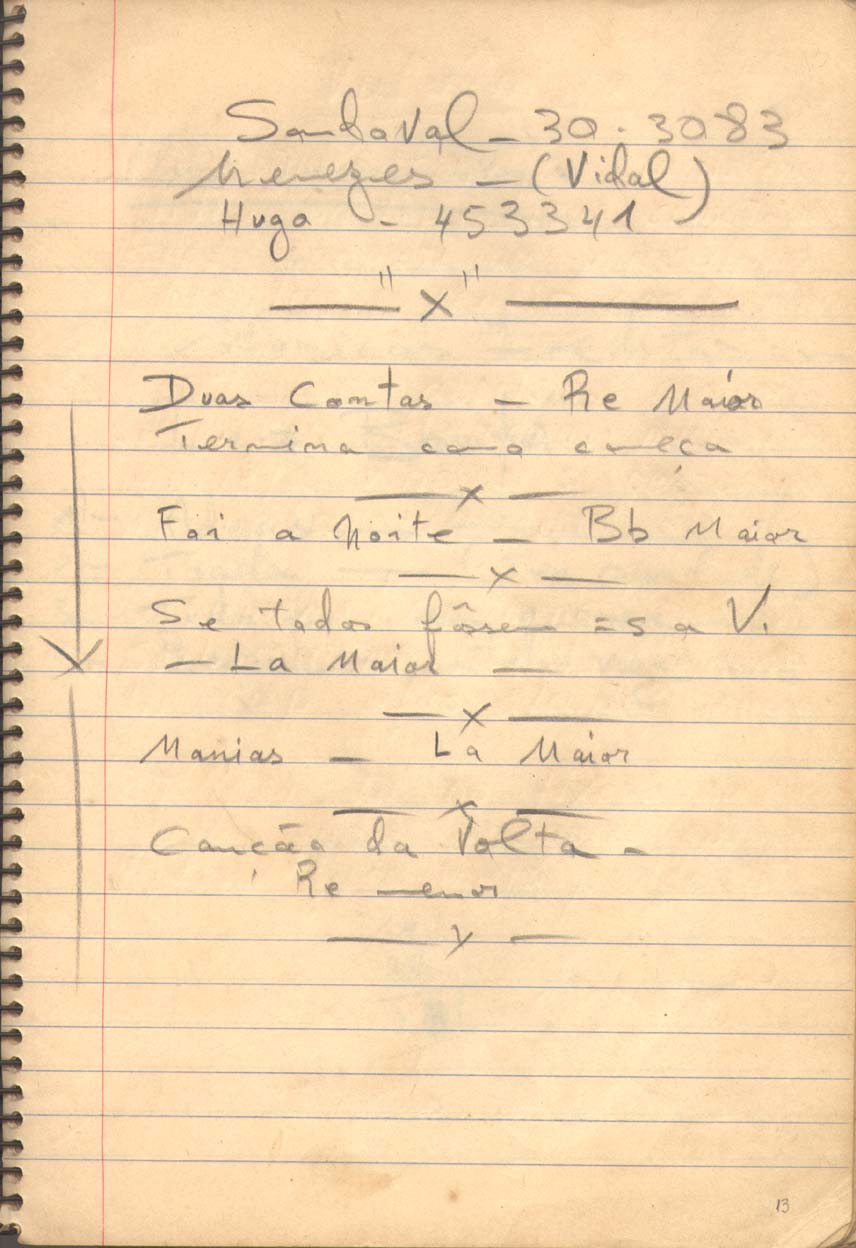 Sandoval - 30.3083
Menezes - (Vidal)
Hugo - 453341
—— "x" ——
Duas Contas - Re Maior
Termina como começa
—— x ——
Foi a Noite - Bb Maior
—— x ——
Se todos fôsem = s a V.
- La Maior -
—— x ——
Manias - La Maior
—— x ——
Canção da Volta -
Re menor
—— x ——
13